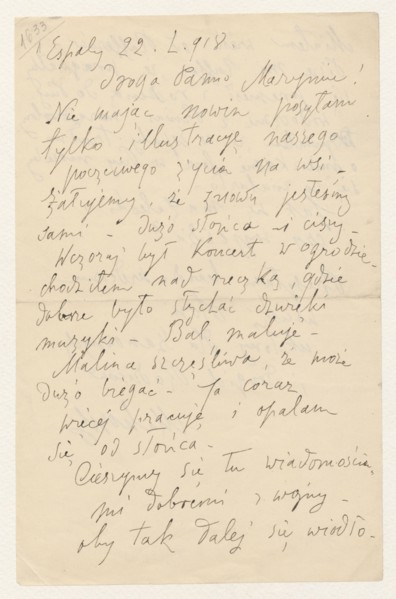 1633
Espaly 22. L. 918
Droga Panno Maryniu!
Nie mając nowin posyłam
tylko illustracye naszego
poczciwego życia na wsi –
Żałujemy, że znowu jesteśmy
sami – dużo słońca – i ciszy –
Wczoraj był Koncert w ogrodzie –
chodziłem nad rzeczką, gdzie
dobrze było słychać dzwięki
muzyki – Bal. maluje –
Malina szczęśliwa, że może
dużo biegać – Ja coraz
więcej pracuję i opalam
się od słońca –
Cieszymy się tu wiadomościa
mi dobremi z wojny –
oby tak dalej się wiodło –